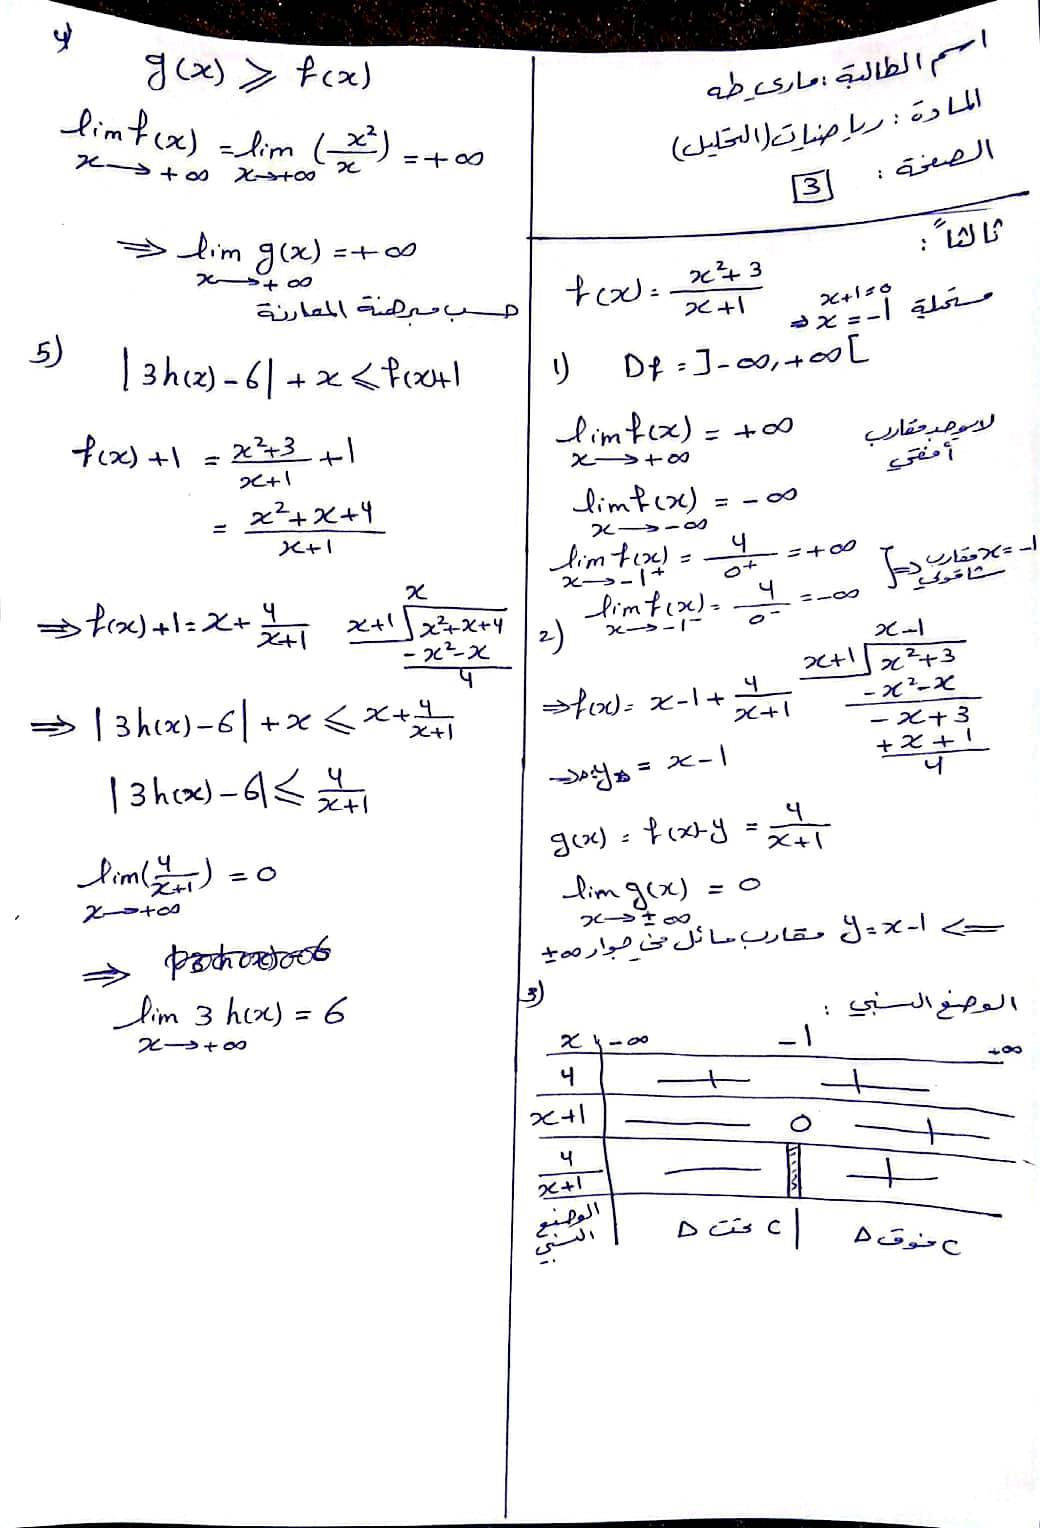 اسم الطالبة: ماري طه
المادة: رياضيات (التحليل)
الصفحة: 3
ثالثاً:
f(x) = (x²+3)/(x+1)
x+1=0
⇒ x=-1 مستحيلة
1) Df = ]-∞,+∞[
lim f(x) = +∞
x→+∞
لا يوجد مقارب
أفقي
lim f(x) = -∞
x→-∞
lim f(x) = 4/0⁺ = +∞
x→-1⁺
lim f(x) = 4/0⁻ = -∞
x→-1⁻
⇒ x=-1 مقارب
شاقولي
2)
x-1
x+1 | x²+3
-x²-x
-x+3
+x+1
4
⇒ f(x) = x-1+ 4/(x+1)
⇒ y = x-1
g(x) = f(x)-y = 4/(x+1)
lim g(x) = 0
x→±∞
⇐ y=x-1 مقارب مائل في جوار ±∞
3) الوضع النسبي:
x -∞ -1 +∞
4 + +
x+1 - 0 +
4/(x+1) - +
الوضع النسبي C تحت Δ | C فوق Δ
4)
g(x) ⩾ f(x)
lim f(x) = lim (x²/x) = +∞
x→+∞ x→+∞
⇒ lim g(x) = +∞
x→+∞
حسب مبرهنة المقارنة
5) |3h(x)-6| + x ⩽ f(x)+1
f(x)+1 = (x²+3)/(x+1) + 1
= (x²+x+4)/(x+1)
⇒ f(x)+1 = x+ 4/(x+1)
x
x+1 | x²+x+4
-x²-x
4
⇒ |3h(x)-6| + x ⩽ x+ 4/(x+1)
|3h(x)-6| ⩽ 4/(x+1)
lim (4/(x+1)) = 0
x→+∞
⇒
lim 3h(x) = 6
x→+∞